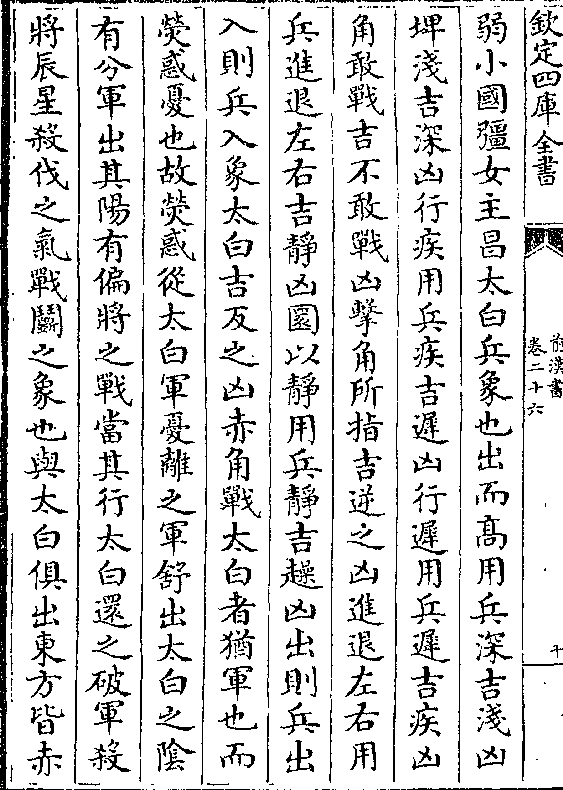 欽定四庫全書
前漢書
卷二十六
十
弱小國彊女主昌太白兵象也出而髙用兵深吉淺凶
埤淺吉深凶行疾用兵疾吉遲凶行遲用兵遲吉疾凶
角敢戰吉不敢戰凶擊角所指吉逆之凶進退左右用
兵進退左右吉靜凶圜以靜用兵靜吉趮凶出則兵出
入則兵入象太白吉反之凶赤角戰太白者猶軍也而
熒惑憂也故熒惑從太白軍憂離之軍舒出太白之陰
有分軍出其陽有偏將之戰當其行太白還之破軍殺
將辰星殺伐之氣戰鬭之象也與太白俱出東方皆赤